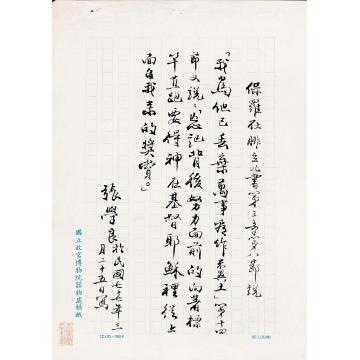 保羅在腓立比書第三章第八節說
「我為他已丟棄萬事看作糞土」第十四
節又說:「忘記背後努力面前的向著標
竿直跑要得神在基督耶穌裡從上
面召我來的獎賞。」
張學良於民國七十七年三
月二十五日寫
國立故宮博物院器物處稿紙